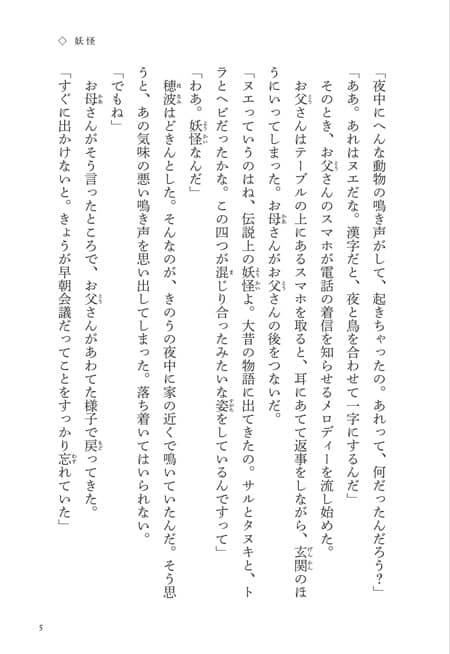 ◇ 妖怪
「夜中にへんな動物の鳴き声がして、起きちゃったの。あれって、何だったんだろう？」
「ああ。あれはヌエだな。漢字だと、夜と鳥を合わせて一字にするんだ」
そのとき、お父さんのスマホが電話の着信を知らせるメロディーを流し始めた。
お父さんはテーブルの上にあるスマホを取ると、耳にあてて返事をしながら、玄関のほ
うにいってしまった。お母さんがお父さんの後をつないだ。
「ヌエっていうのはね、伝説上の妖怪よ。大昔の物語に出てきたの。サルとタヌキと、ト
ラとヘビだったかな。この四つが混じり合ったみたいな姿をしているんですって」
「わあ。妖怪なんだ」
穂波はどきんとした。そんなのが、きのうの夜中に家の近くで鳴いていたんだ。そう思
うと、あの気味の悪い鳴き声を思い出してしまった。落ち着いてはいられない。
「でもね」
お母さんがそう言ったところで、お父さんがあわてた様子で戻ってきた。
「すぐに出かけないと。きょうが早朝会議だってことをすっかり忘れていた」
5